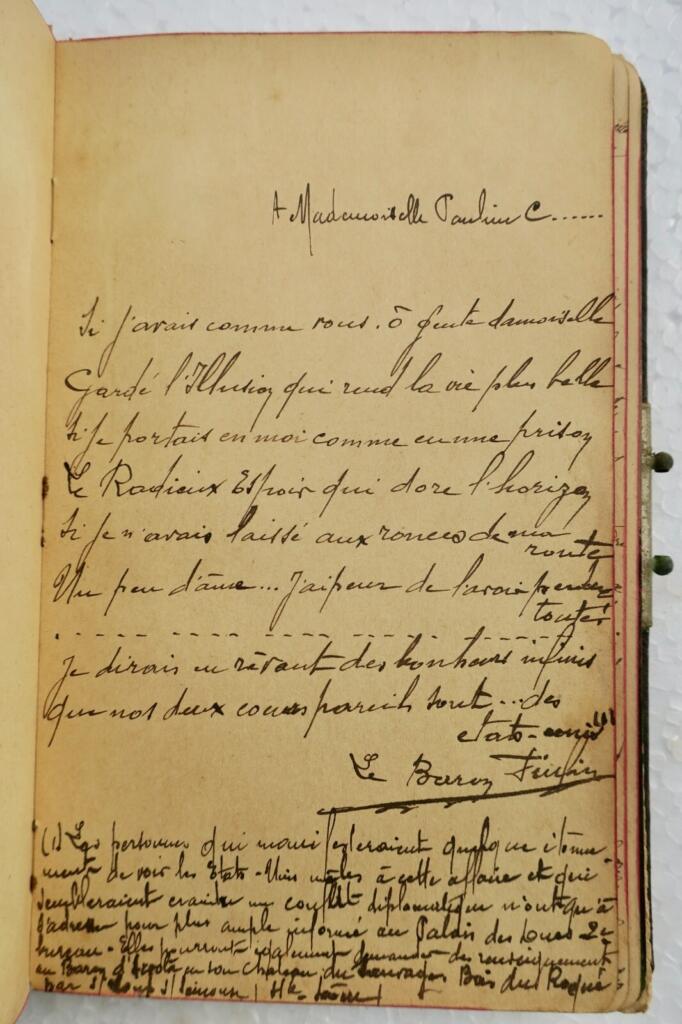 A Mademoiselle Pauline C......
Si j'avais comme vous, ô gente damoiselle
Gardé l'Illusion qui rend la vie plus belle
Si je portais en moi comme en une prison
Le Radieux Espoir qui dore l'horizon
Si je n'avais laissé aux ronces de ma
route
Un peu d'âme... J'ai peur de l'avoir perdue
toute!
. - - - - - - - - - - - - - - - -
Je dirais en rêvant des bonheurs infinis
Que nos deux coeurs pareils sont... des
etats-unis (1)
Le Baron
(1) Les personnes qui manifesteraient quelque étonne
ment de voir les Etats-Unis mêlés à cette affaire et qui
sembleraient craindre un conflit diplomatique n'ont qu'à
s'adresser pour plus ample informé au Palais des Ducs 2e
bureau - Elles pourront également demander des renseignements
au Baron en son Chateau du Sauvageon Bois du
par s/ Loup s/ Hte Saône)